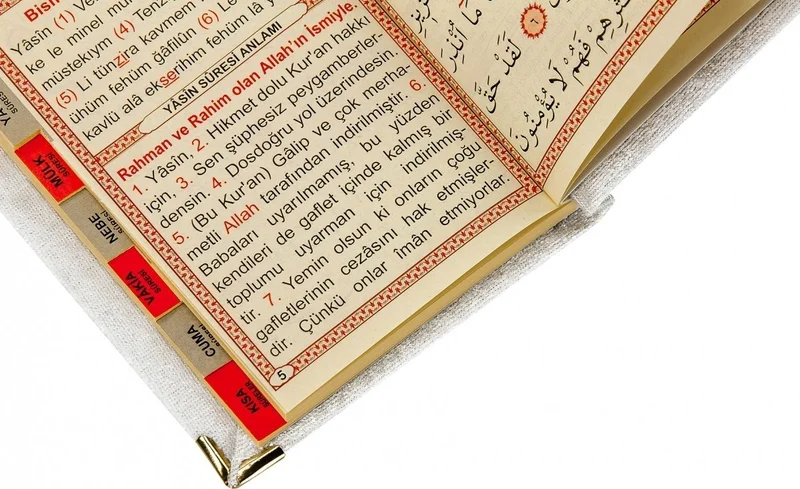 Bism
Yâsîn (1) Ve
(4) Tenz
ke le minel mu
müstekıym
(5) Li tünzira kavmem
(6) Le
ühüm fehüm ğafilûn
kavlü alâ ekserihim fehüm lâ y
YÂSÎN SÛRESİ ANLAMI
Rahman ve Rahim olan Allah'ın İsmiyle
1. Yâsîn, 2. Hikmet dolu Kur'an hakk
için. 3. Sen şüphesiz peygamberler-
densin. 4. Dosdoğru yol üzerindesin.
5. (Bu Kur'an) Gâlip ve çok merha-
metli Allah tarafından indirilmiştir. 6.
Babaları uyarılmamış, bu yüzden
kendileri de gaflet içinde kalmış bir
toplumu uyarman için indirilmiş-
tir. 7. Yemin olsun ki onların çoğu
gafletlerinin cezâsını hak etmişler-
dir. Çünkü onlar îmân etmiyorlar.
5
لَقَدْ حَقَّ
٦
فَهُمْ لَا يُؤْمِنُونَ
YÂ
SÛRESİ
MÜLK
SÛRESİ
NEBE
SÛRESİ
VAKIA
SÛRESİ
CUMA
SÛRESİ
KISA
SÛRELER